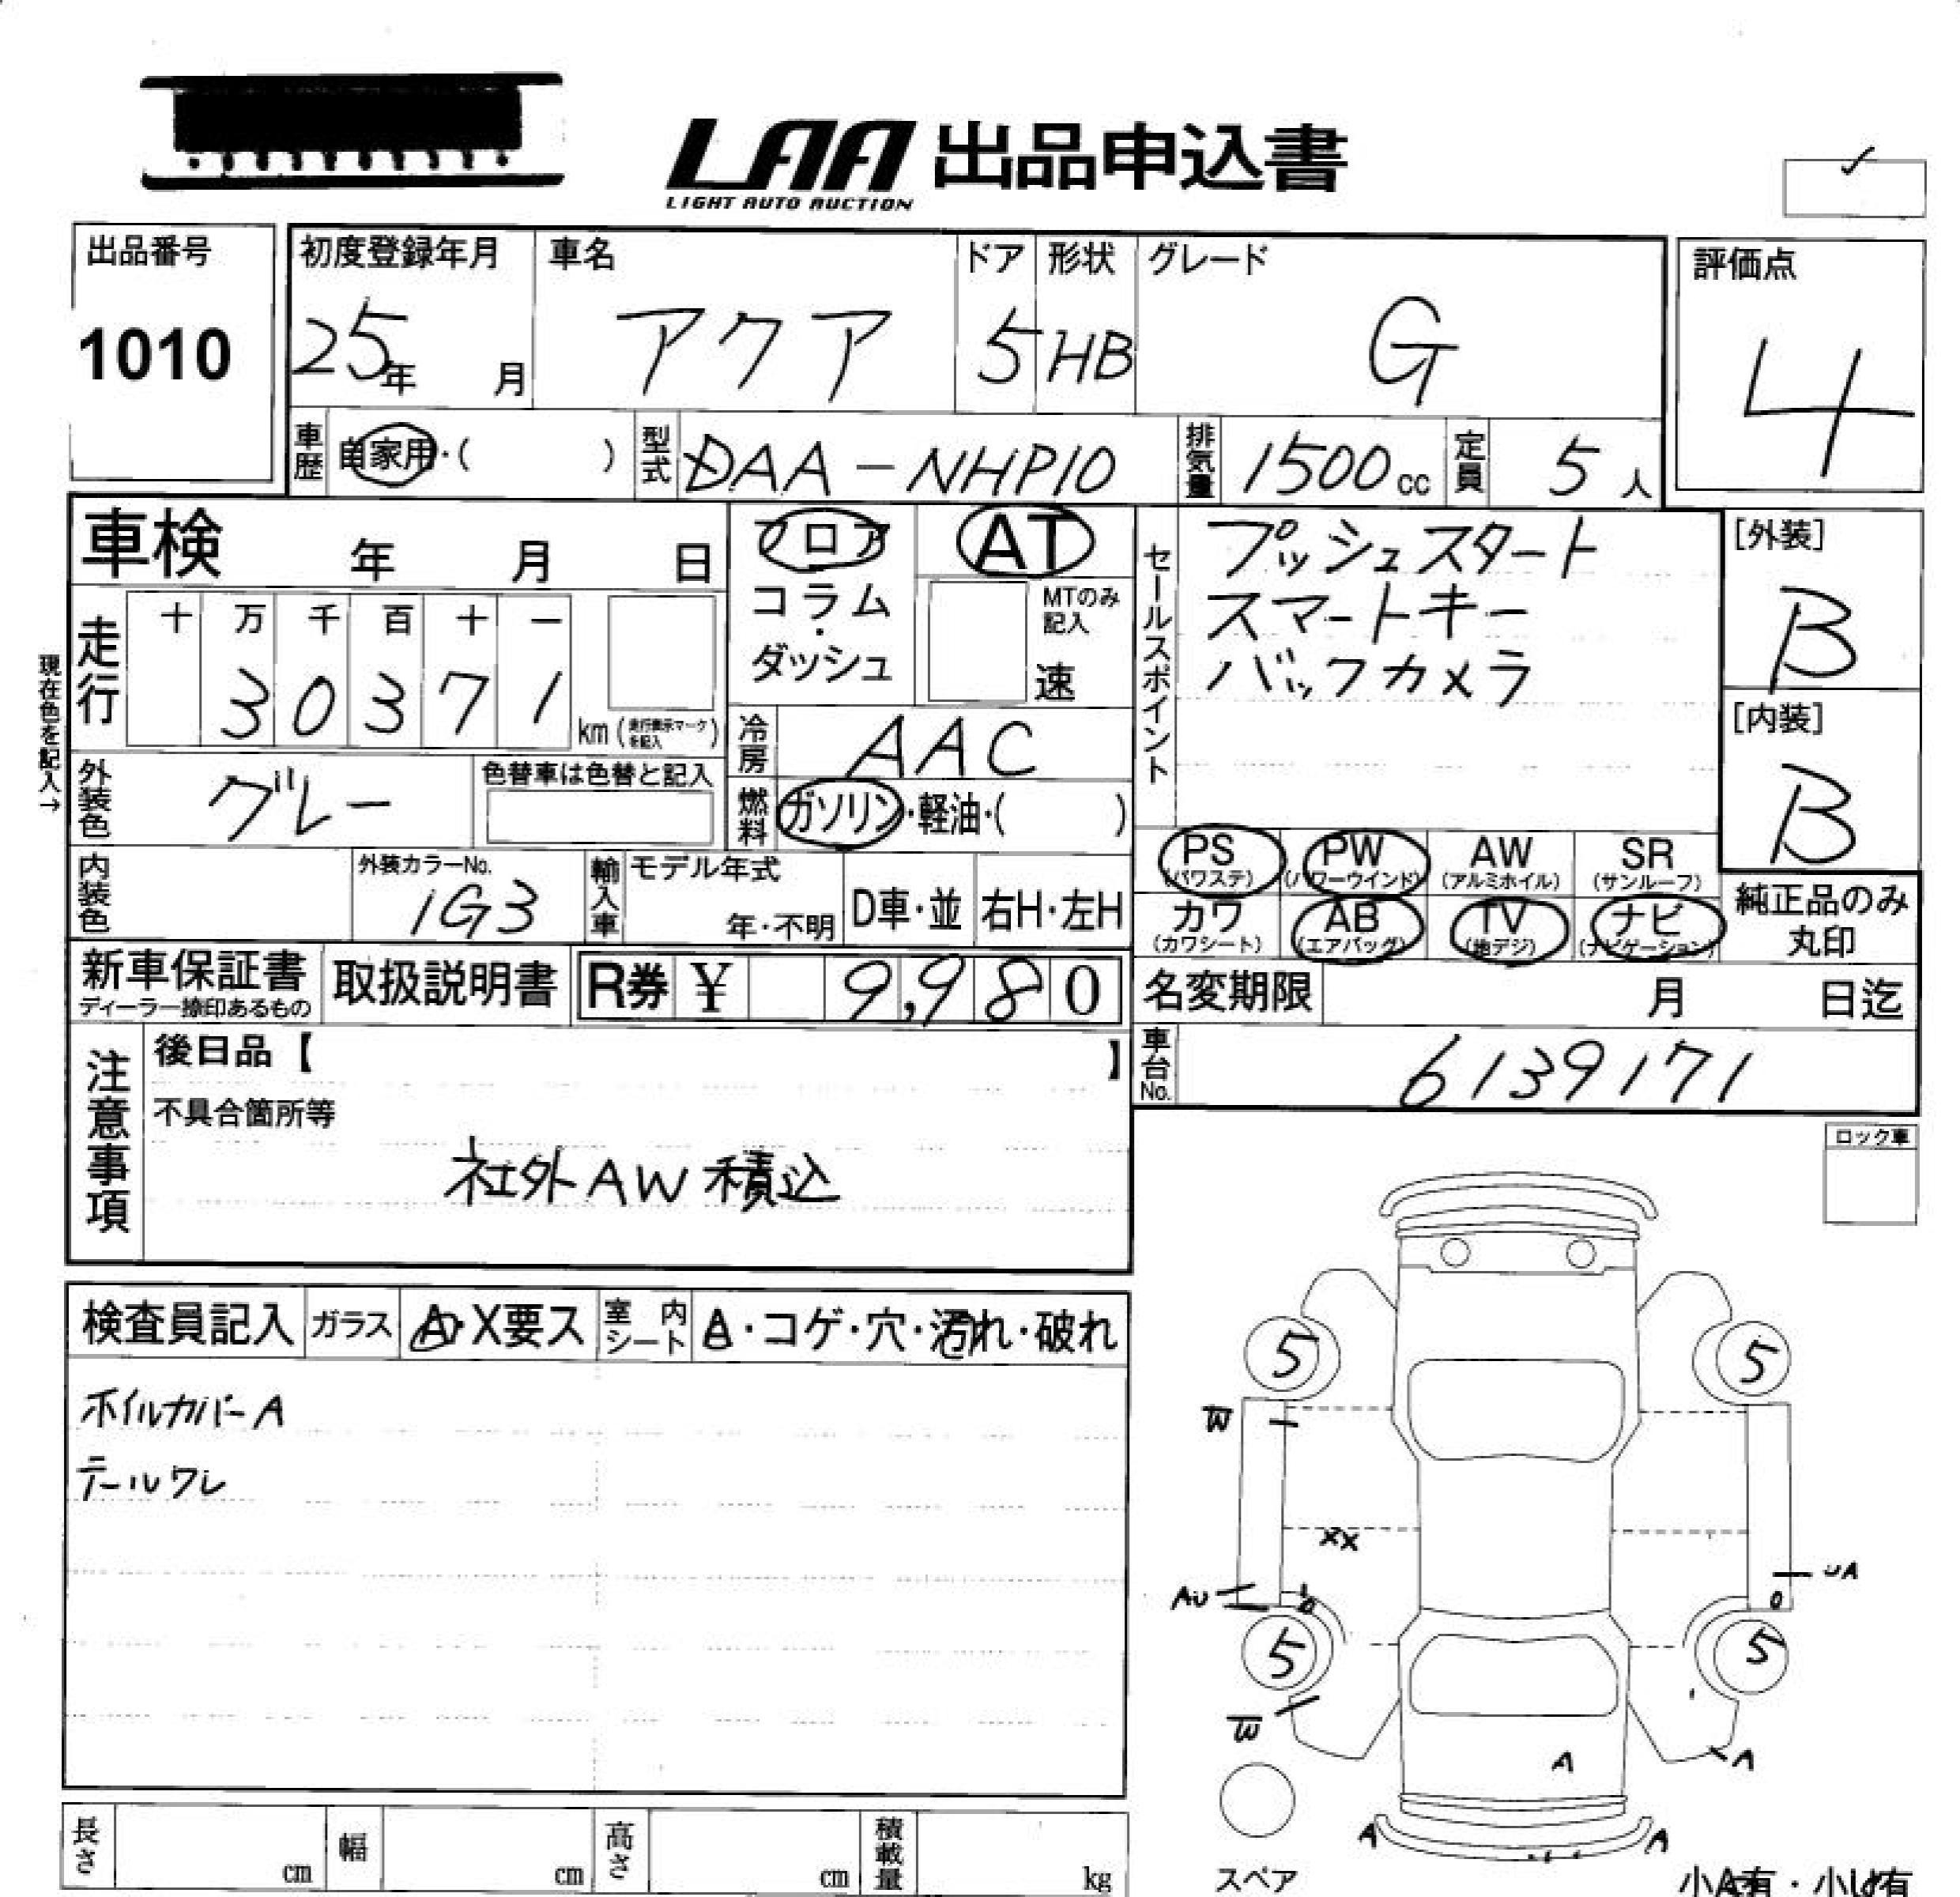 LAA 出品申込書
LIGHT AUTO AUCTION
出品番号
1010
初度登録年月
25年 月
車名
アクア
ドア
5
形状
HB
グレード
G
評価点
4
車歴
自家用・( )
型式
DAA-NHP10
排気量
1500cc
定員
5人
車検 年 月 日
フロア
コラム
・
ダッシュ
AT
MTのみ
記入
速
セールスポイント
プッシュスタート
スマートキー
バックカメラ
[外装]
B
[内装]
B
現在色を記入→
走行
十 万 千 百 十 一
3 0 3 7 1
km (走行表示マークを記入)
冷房
AAC
外装色
グレー
色替車は色替と記入
燃料
ガソリン・軽油・( )
内装色
外装カラーNo.
1G3
輸入車
モデル年式
年・不明
D車・並
右H・左H
PS
(パワステ)
PW
(パワーウインド)
AW
(アルミホイル)
SR
(サンルーフ)
カワ
(カワシート)
AB
(エアバッグ)
TV
(地デジ)
ナビ
(ナビゲーション)
純正品のみ
丸印
新車保証書
ディーラー捺印あるもの
取扱説明書
R券 ¥ 9,980
名変期限 月 日迄
車台No.
6139171
注意事項
後日品【 】
不具合箇所等
社外AW積込
ロック車
検査員記入
ガラス
A・X要ス
室内
シート
A・コゲ・穴・汚れ・破れ
ホイルカバーA
テールワレ
5
5
W
XX
UA
AU
5
5
W
A
A
A
A
スペア
小A有・小U有
長さ cm
幅 cm
高さ cm
積載量 kg